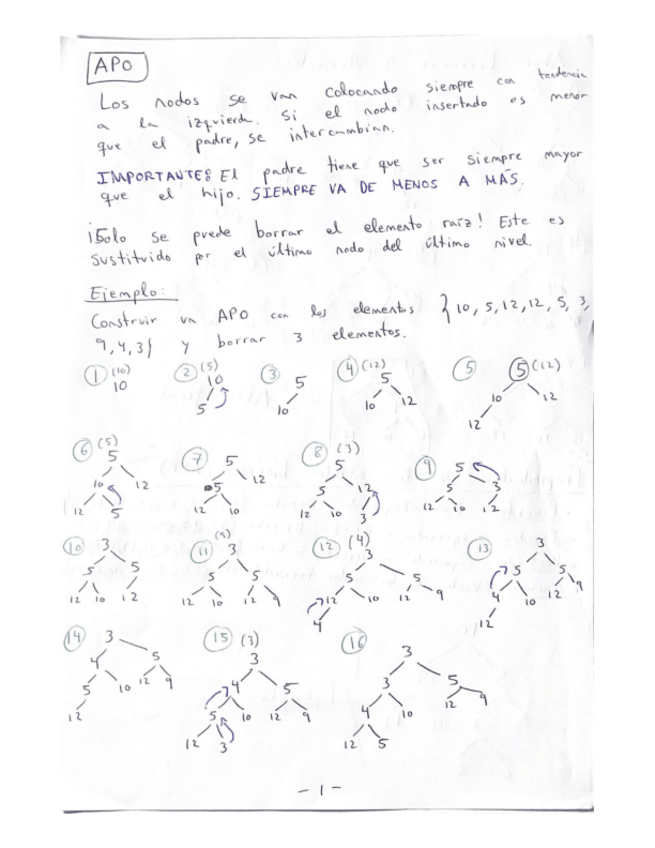 APO
Los nodos se van colocando siempre con tendencia
a la izquierda. Si el nodo insertado es menor
que el padre, se intercambian.
IMPORTANTE: El padre tiene que ser siempre mayor
que el hijo. SIEMPRE VA DE MENOS A MÁS.
¡Solo se puede borrar el elemento raíz! Este es
sustituido por el último nodo del último nivel.
Ejemplo:
Construir un APO con los elementos {10, 5, 12, 12, 5, 3,
9, 4, 3} y borrar 3 elementos.
1 (10) 2 (5) 3 4 (12) 5 (12)
10 10 5 5 5
5 10 10 12 10 12
12
6 (5) 7 8 (3) 9
5 5 5 5
10 12 5 12 5 12 5 3
12 5 12 10 12 10 3 12 10 12
10 11 (9) 12 (4) 13
3 3 3 3
5 5 5 5 5 5 5 5
12 10 12 12 10 12 9 12 10 12 9 4 10 12 9
4 12
14 15 (3) 16
3 3 3
4 5 4 5 3 5
5 10 12 9 5 10 12 9 4 10 12 9
12 12 3 12 5
- 1 -